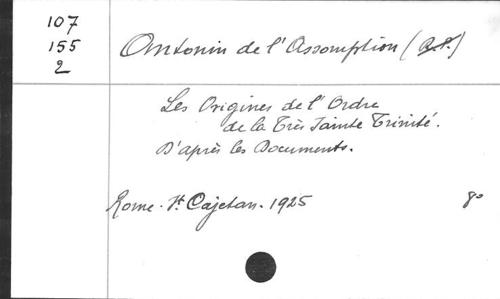 107
155
2
Antonin de l'Assomption (R.P.)
Les Origines de l'Ordre
de la Très Sainte Trinité.
D'après les Documents.
Rome. St Cajetan. 1925 8°